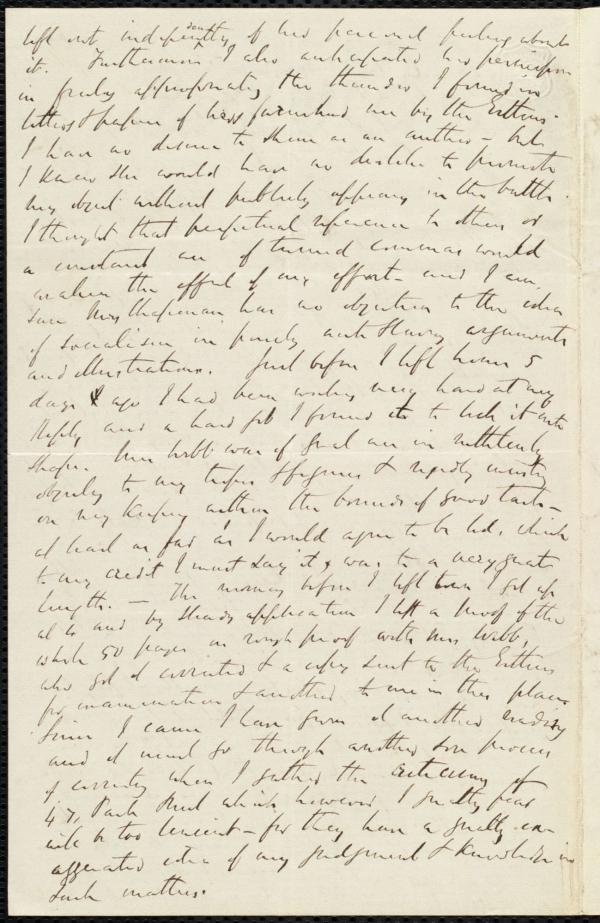 left not independently of her personal feelings about
it. Furthermore I also anticipated her permission
in freely appropriating the thunder I found in
letters & papers of hers furnished me by the Estlins.
I have no desire to shine as an author – but
I knew she would have no dislike to promote
my object without publicly appearing in the battle.
I thought that perpetual reference to others or
a constant use of turned commas would
weaken the effect of my effort – and I am
sure Mrs Chapman has no objection to the idea
of socialism in purely anti Slavery arguments
and illustrations. Just before I left home 5
days ago I had been working very hard at my
Reply and a hard job I found it to lick it into
shape. Mrs Webb was of great use in ruthlessly
objecting to my tropes & figures & rigidly insisting
on my keeping within the bounds of good taste –
at least as far as I would agree to be led, which
to my credit I must say it, was to a very great
length. – The morning before I left home I got up
at 4 and by steady application I left a proof of the
whole 50 pages in rough proof with Mrs Webb,
who got it corrected & a copy sent to the Estlins
for examination & another to me in this place
Since I came I have given it another reading
and it must go through another sore process
of correcting when I gather the criticisms of
47, Park Street which however I greatly fear
will be too lenient – for they have a greatly ex-
aggerated idea of my judgment & knowledge in
such matters.